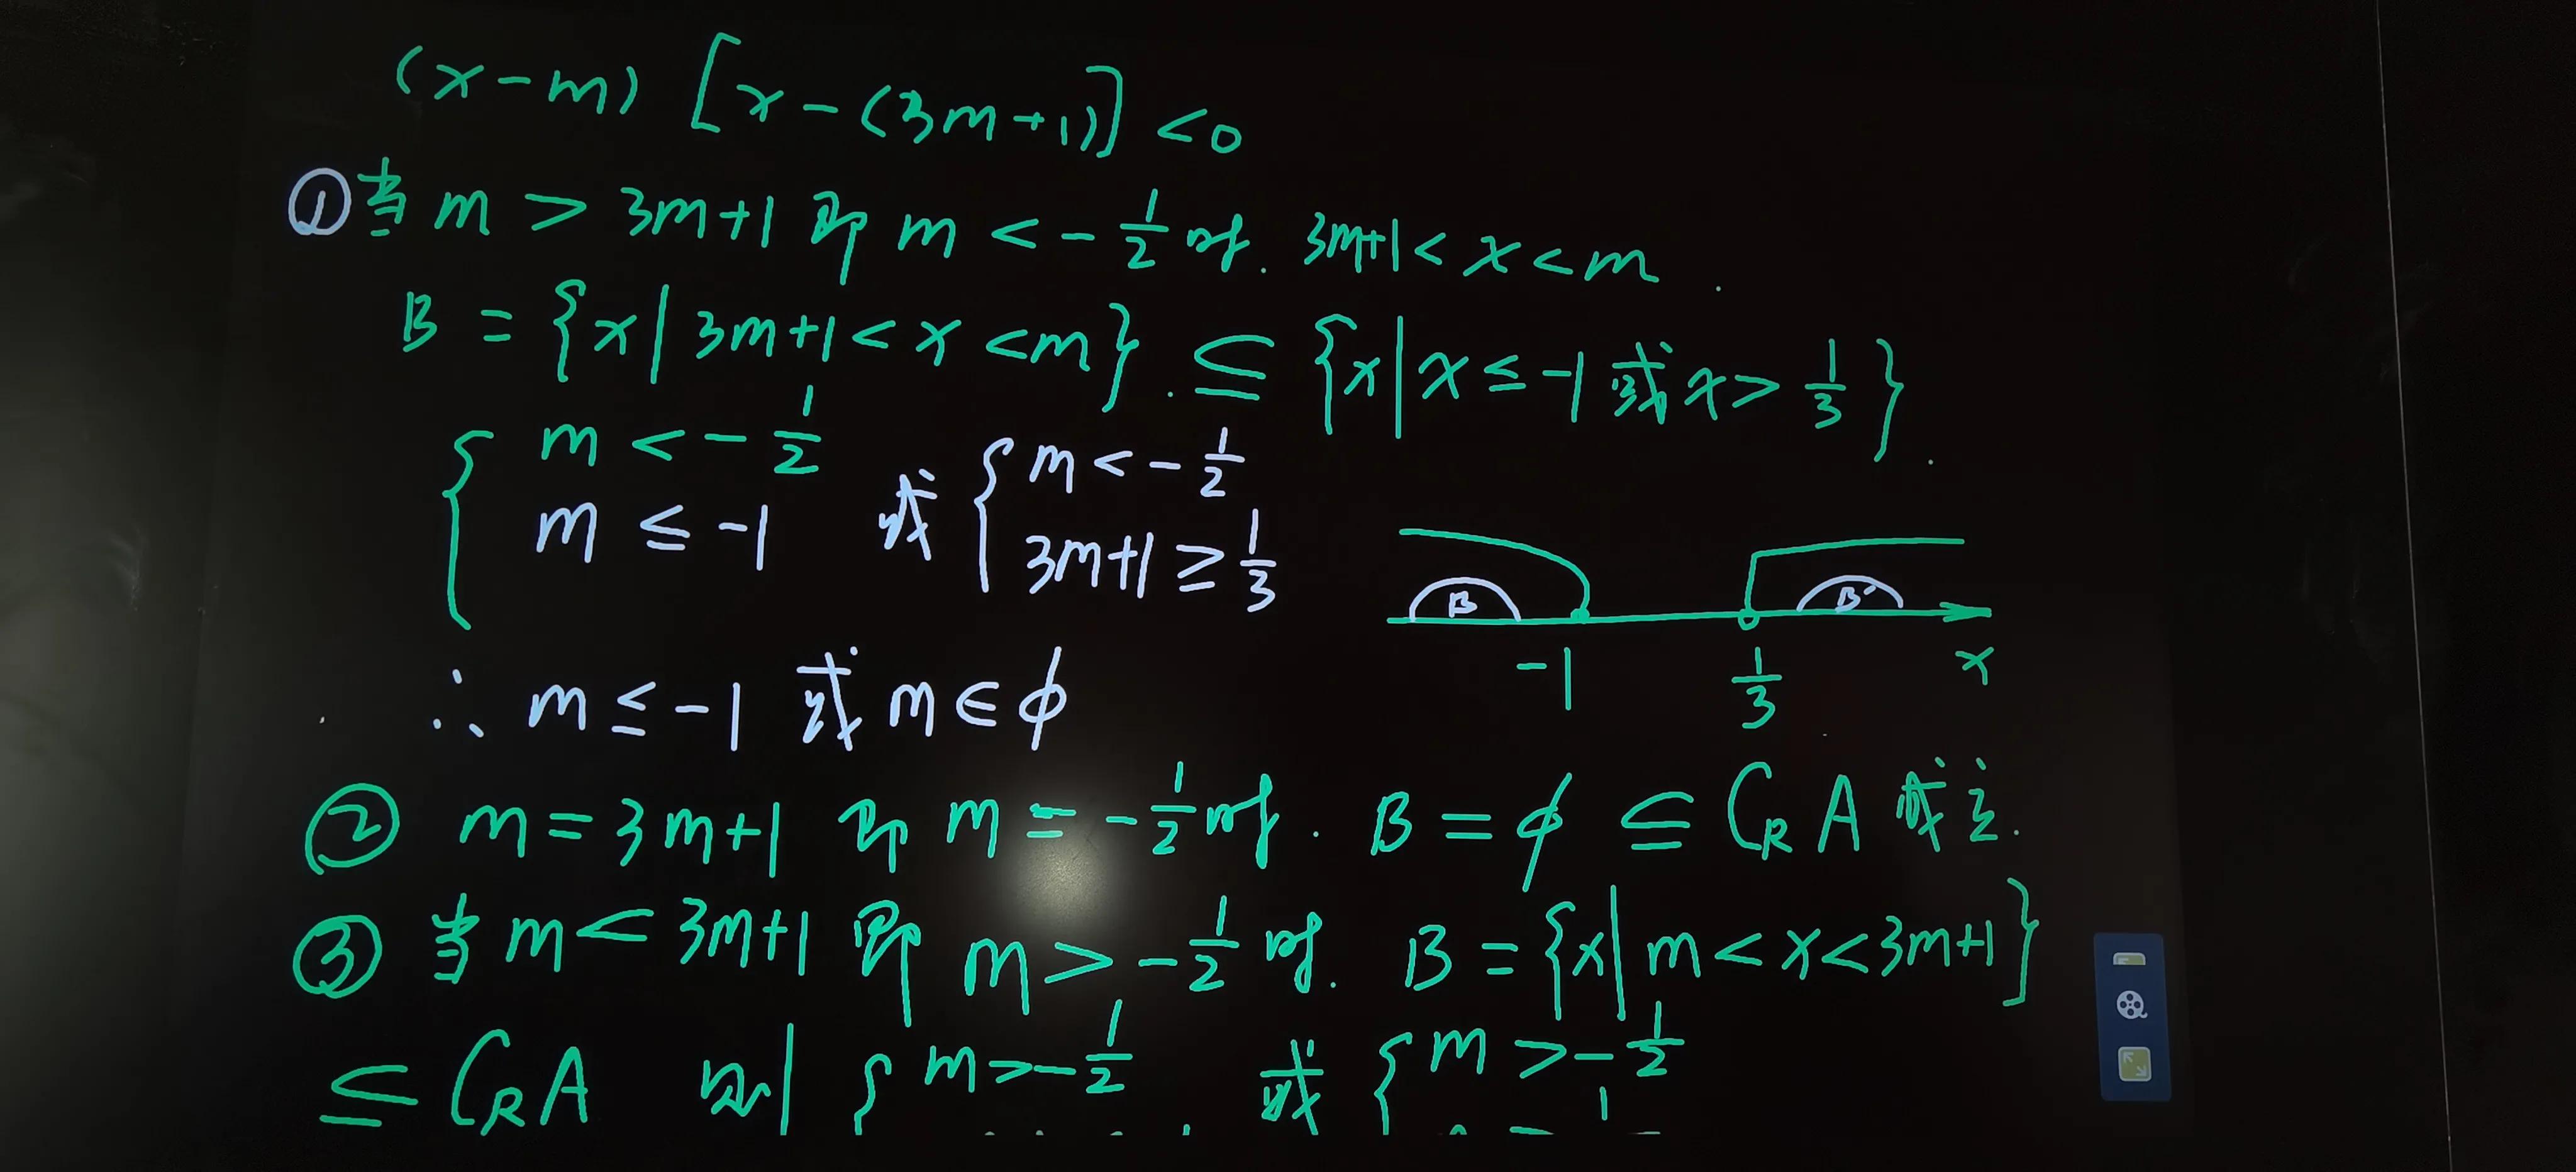 (x-m) [x-(3m+1)] <0
①当 m > 3m+1 即 m < -1/2 时. 3m+1 < x < m.
B = {x | 3m+1 < x < m} ⊆ {x | x ≤ -1 或 x > 1/3}.
{ m < -1/2 或 { m < -1/2
m ≤ -1 3m+1 ≥ 1/3
B B
-1 1/3 x
∴ m ≤ -1 或 m ∈ ϕ
② m = 3m+1 即 m = -1/2 时. B = ϕ ⊆ C_R A 成立.
③ 当 m < 3m+1 即 m > -1/2 时. B = {x | m < x < 3m+1}
⊆ C_R A 则 { m > -1/2 或 { m > -1/2